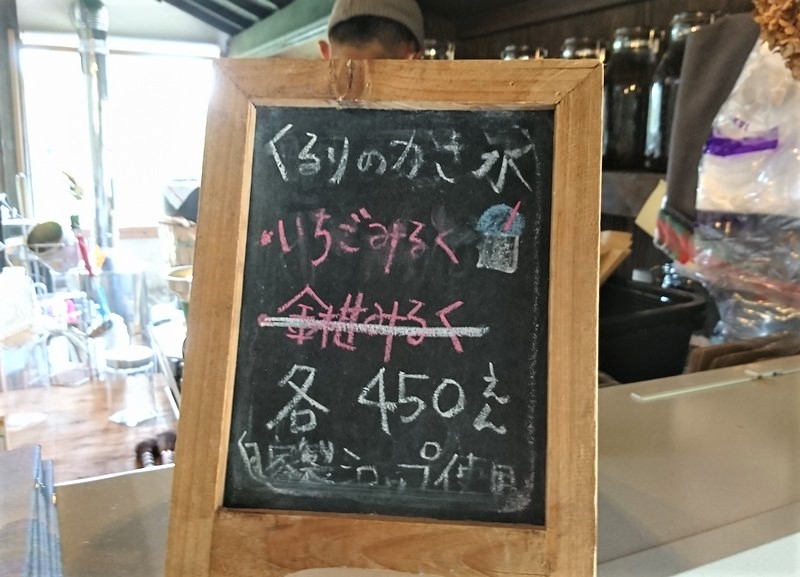 くるりのかき氷
・いちごみるく
・金柑みるく
各450えん
自家製シロップ使用